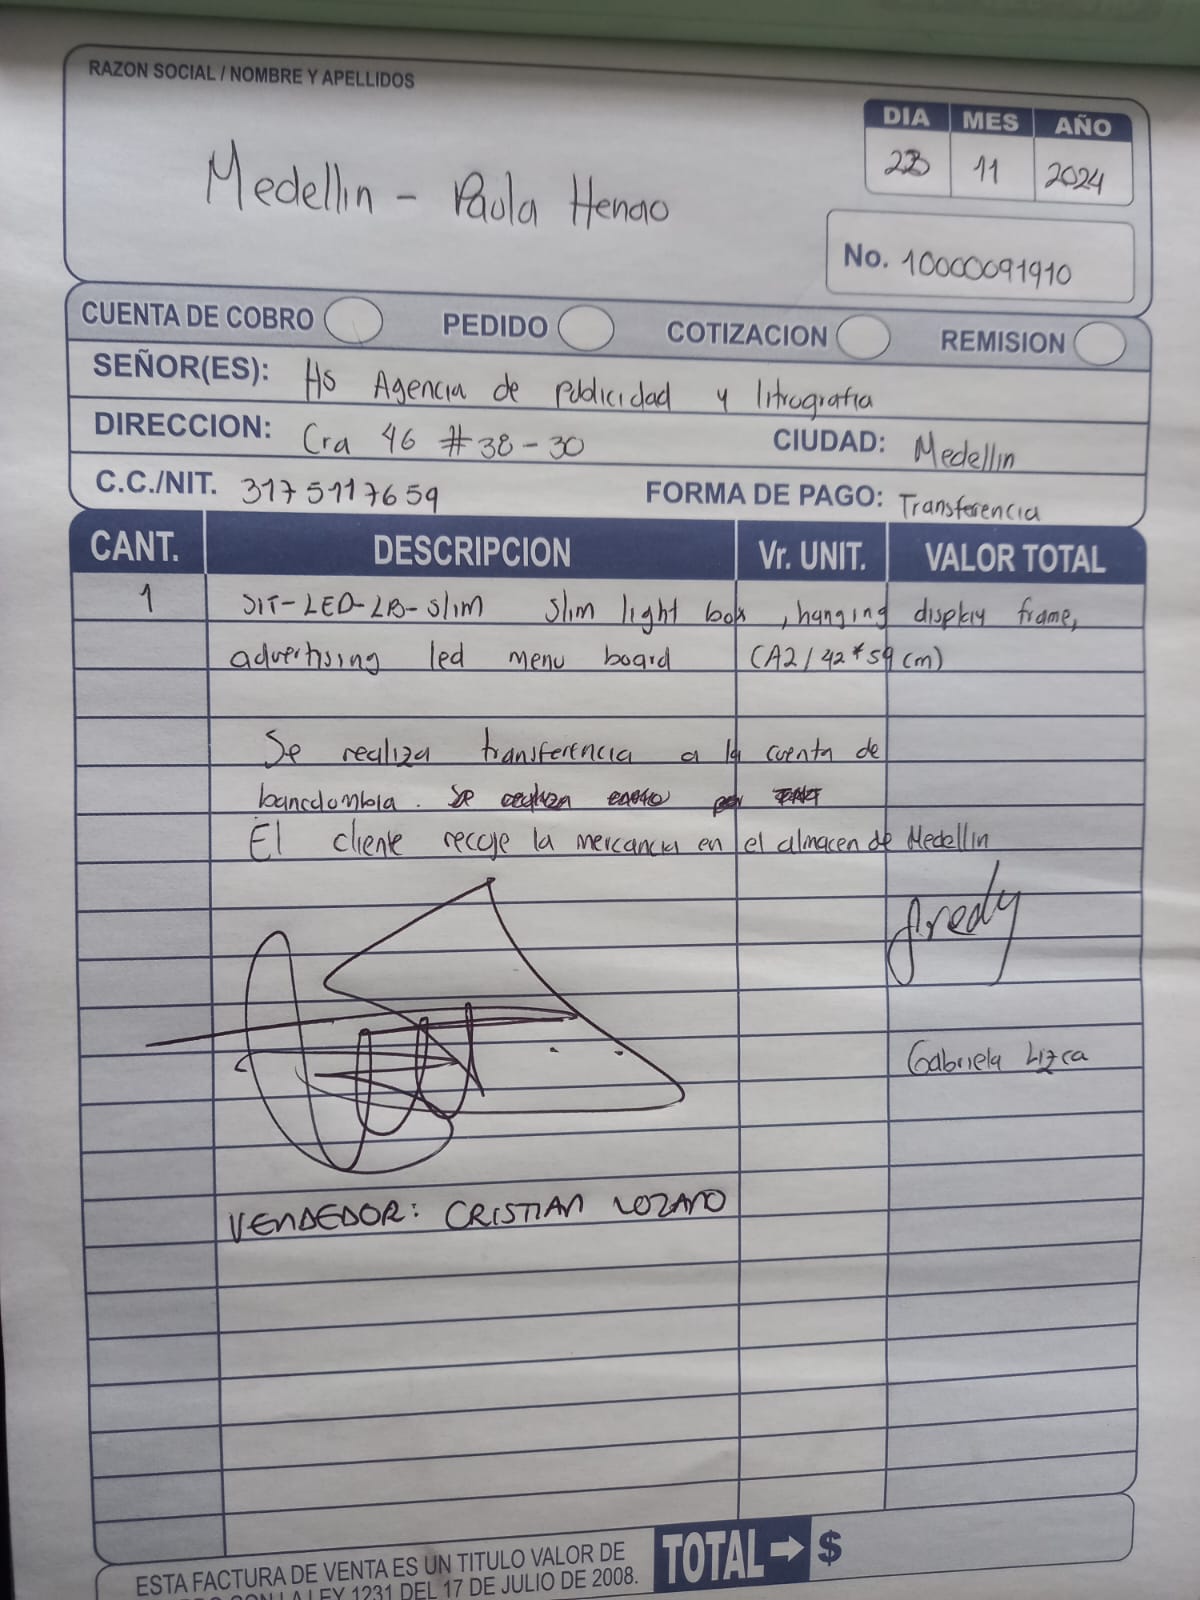 RAZON SOCIAL / NOMBRE Y APELLIDOS
DIA MES AÑO
11 2024
Medellin - Paula Henao
No. 10000091910
CUENTA DE COBRO PEDIDO COTIZACION REMISION
SEÑOR(ES): HS Agencia de publicidad y litografia
DIRECCION: Cra 46 #38-30 CIUDAD: Medellin
C.C./NIT. 3175117659 FORMA DE PAGO: Transferencia
CANT. DESCRIPCION Vr. UNIT. VALOR TOTAL
1 SIT-LED-LB-Slim Slim light box, hanging display frame,
advertising led menu board (A2/42*59 cm)
Se realiza transferencia a la cuenta de
bancolombia.
El cliente recoje la mercancia en el almacen de Medellin
Fredy
Gabriela
VENDEDOR: CRISTIAN LOZANO
ESTA FACTURA DE VENTA ES UN TITULO VALOR DE
LEY 1231 DEL 17 DE JULIO DE 2008.
TOTAL → $